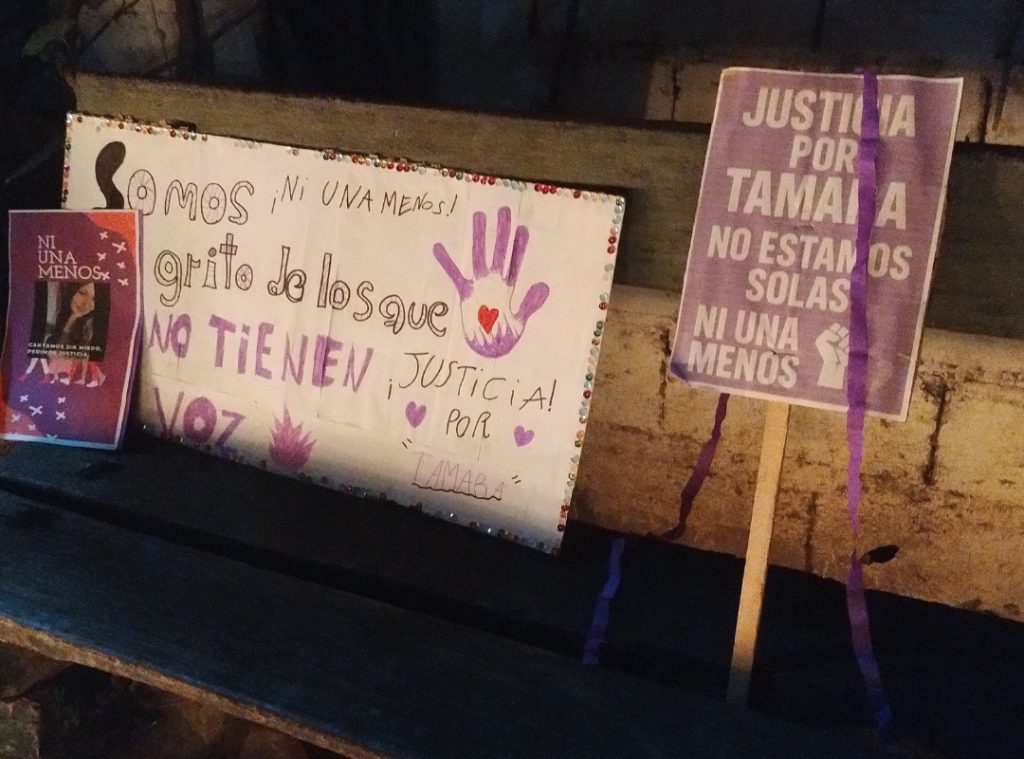 NI
UNA
MENOS
CANTAMOS SIN MIEDO,
PEDIMOS JUSTICIA.
Somos
¡NI UNA MENOS!
grito de los que
NO TIENEN
VOZ
¡JUSTICIA!
POR
"TAMARA"
JUSTICIA
POR
TAMARA
NO ESTAMOS
SOLAS
NI UNA
MENOS